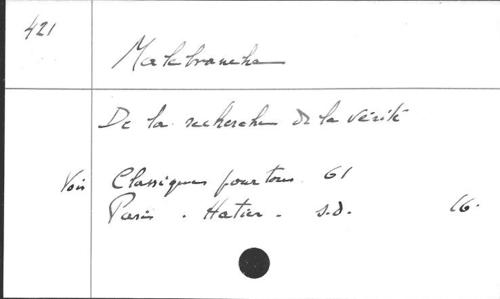 421
Malebranche
De la recherche de la vérité
Voir Classiques pour tous 61
Paris - Hatier - s.d. 16.